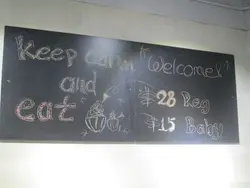 Keep calm
and
eat
"Welcome!"
28 Reg
15 Baby